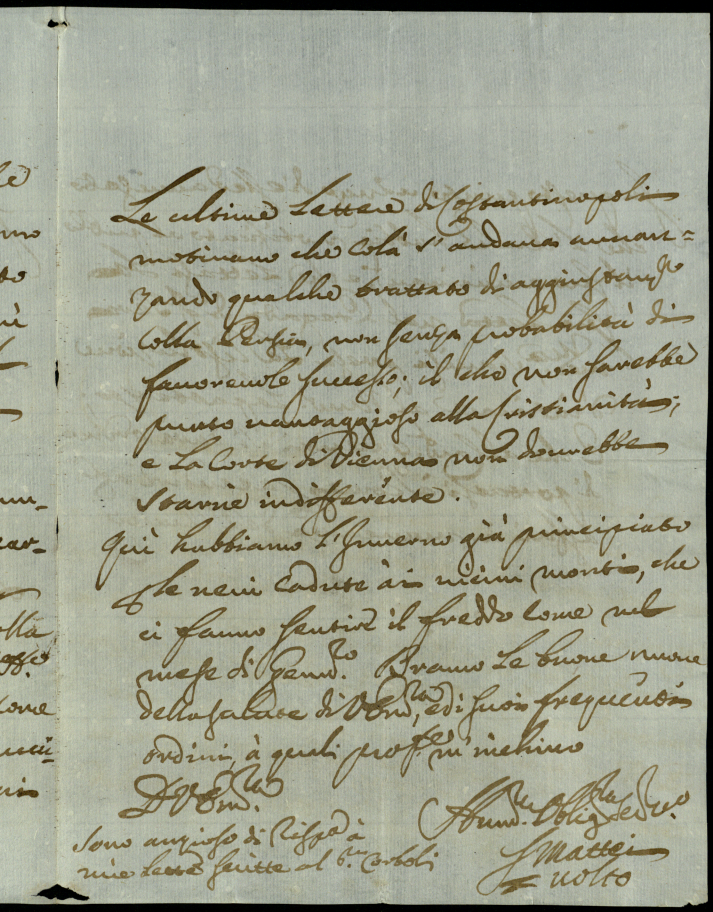 Le ultime Lettere di Costantinopoli
motivano che colà s'andava avvan=
zando qualche trattato di aggiustam.to
colla Persia, non senza probabilità di
favorevole successo; il che non sarebbe
punto vantaggioso alla Cristianità;
e La Corte di Vienna non dovrebbe
starne indifferente.
Quì habbiamo L'Inverno già principiato
le nevi cadute à i vicini monti, che
ci fanno sentire il freddo come nel
mese di Genn.ro. Bramo Le buone nuove
della salute di V Em.za, e di suoi frequenti
ordini, à quali m'inchino
D V Em.za
Sono anzioso di Risp.ta à
mie Lettere scritte al Corboli
Mattei